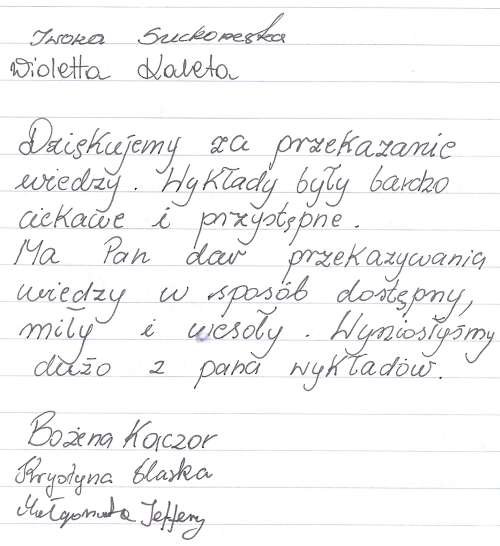 Iwona Suchorerska
Wioletta Kaleta
Dziękujemy za przekazanie
wiedzy. Wykłady były bardzo
ciekawe i przystępne.
Ma Pan dar przekazywania
wiedzy w sposób dostępny,
miły i wesoły. Wyniosłyśmy
dużo z pana wykładów.
Bożena Kaczor
Krystyna
Małgorzata Jeffery